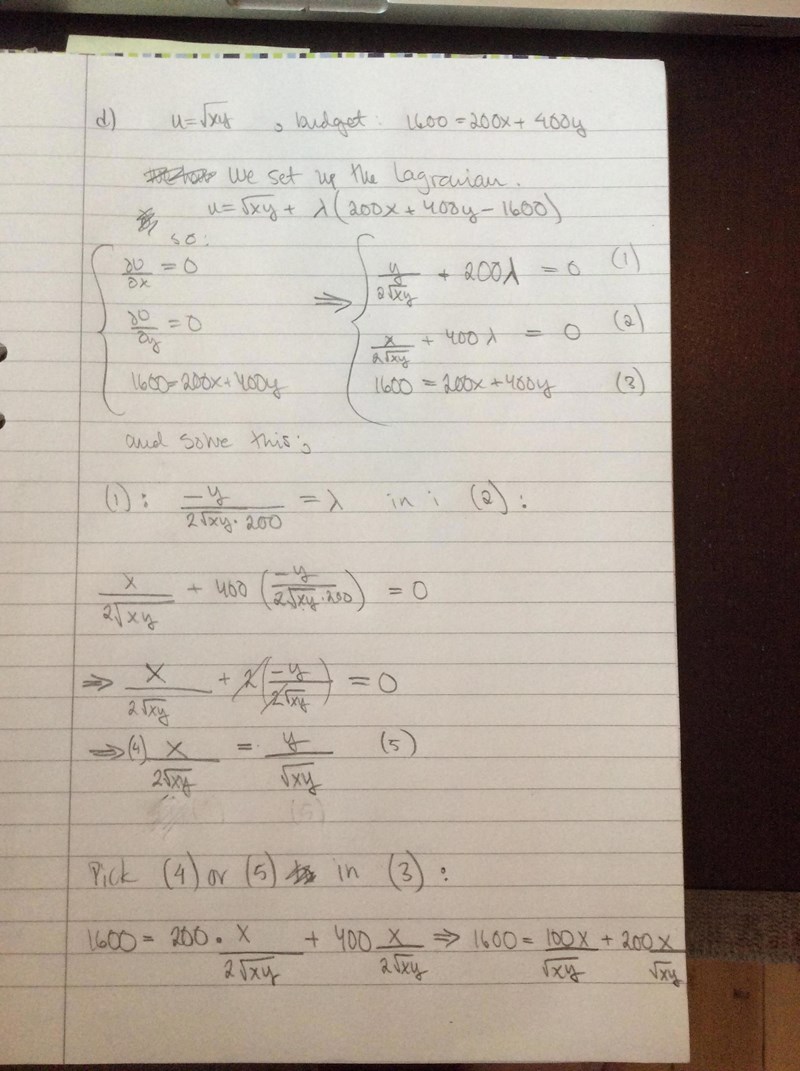 d) u=√xy , budget: 1600 = 200x + 400y
We set up the Lagranian.
u=√xy + λ(200x + 400y − 1600)
so:
∂U/∂x = 0 ⇒ y/2√xy + 200λ = 0 (1)
∂U/∂y = 0 x/2√xy + 400λ = 0 (2)
1600=200x+400y 1600 = 200x+400y (3)
and solve this:
(1): −y/2√xy·200 = λ in i (2):
x/2√xy + 400(−y/2√xy·200) = 0
⇒ x/2√xy + 2(−y/2√xy) = 0
⇒(4) x/2√xy = y/√xy (5)
(5)
Pick (4) or (5) in (3):
1600 = 200 · x/2√xy + 400 x/2√xy ⇒ 1600 = 100x/√xy + 200x/√xy